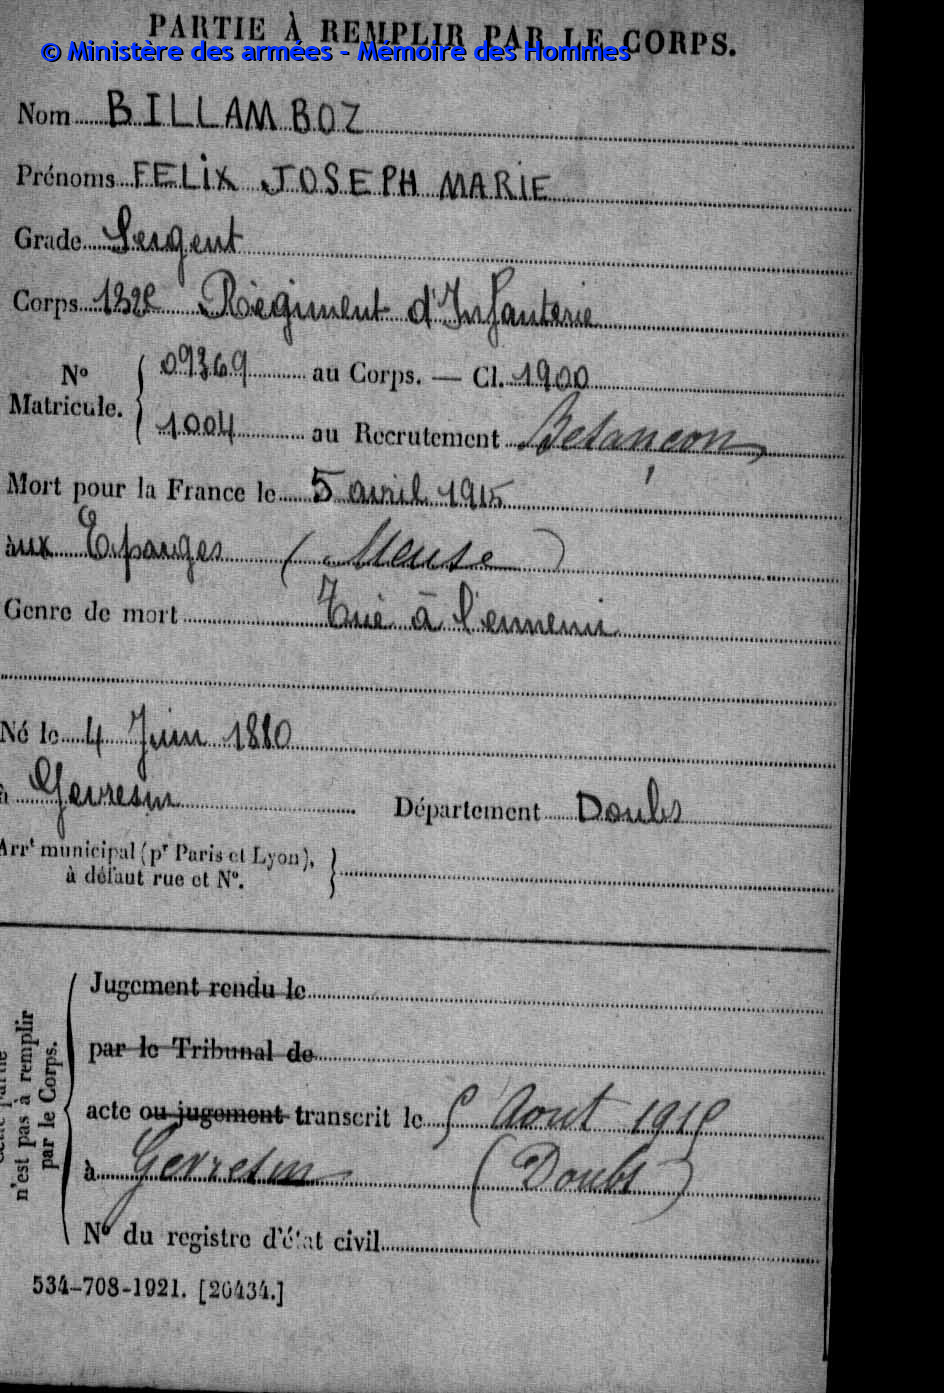 PARTIE À REMPLIR PAR LE CORPS.
© Ministère des armées - Mémoire des Hommes
Nom BILLAMBOZ
Prénoms FELIX JOSEPH MARIE
Grade Sergent
Corps 132e Régiment d'Infanterie
No Matricule. { 09369 au Corps. — Cl. 1900
1004 au Recrutement Besançon
Mort pour la France le 5 avril 1915
aux Eparges (Meuse)
Genre de mort Tué à l'ennemi
Né le 4 Juin 1880
à Gevresin Département Doubs
Arrt municipal (pr Paris et Lyon),
à défaut rue et No.
Jugement rendu le
par le Tribunal de
acte ou jugement transcrit le 5 Aout 1915
à Gevresin (Doubs)
No du registre d'état civil
n'est pas à remplir
par le Corps.
534-708-1921. [26434.]